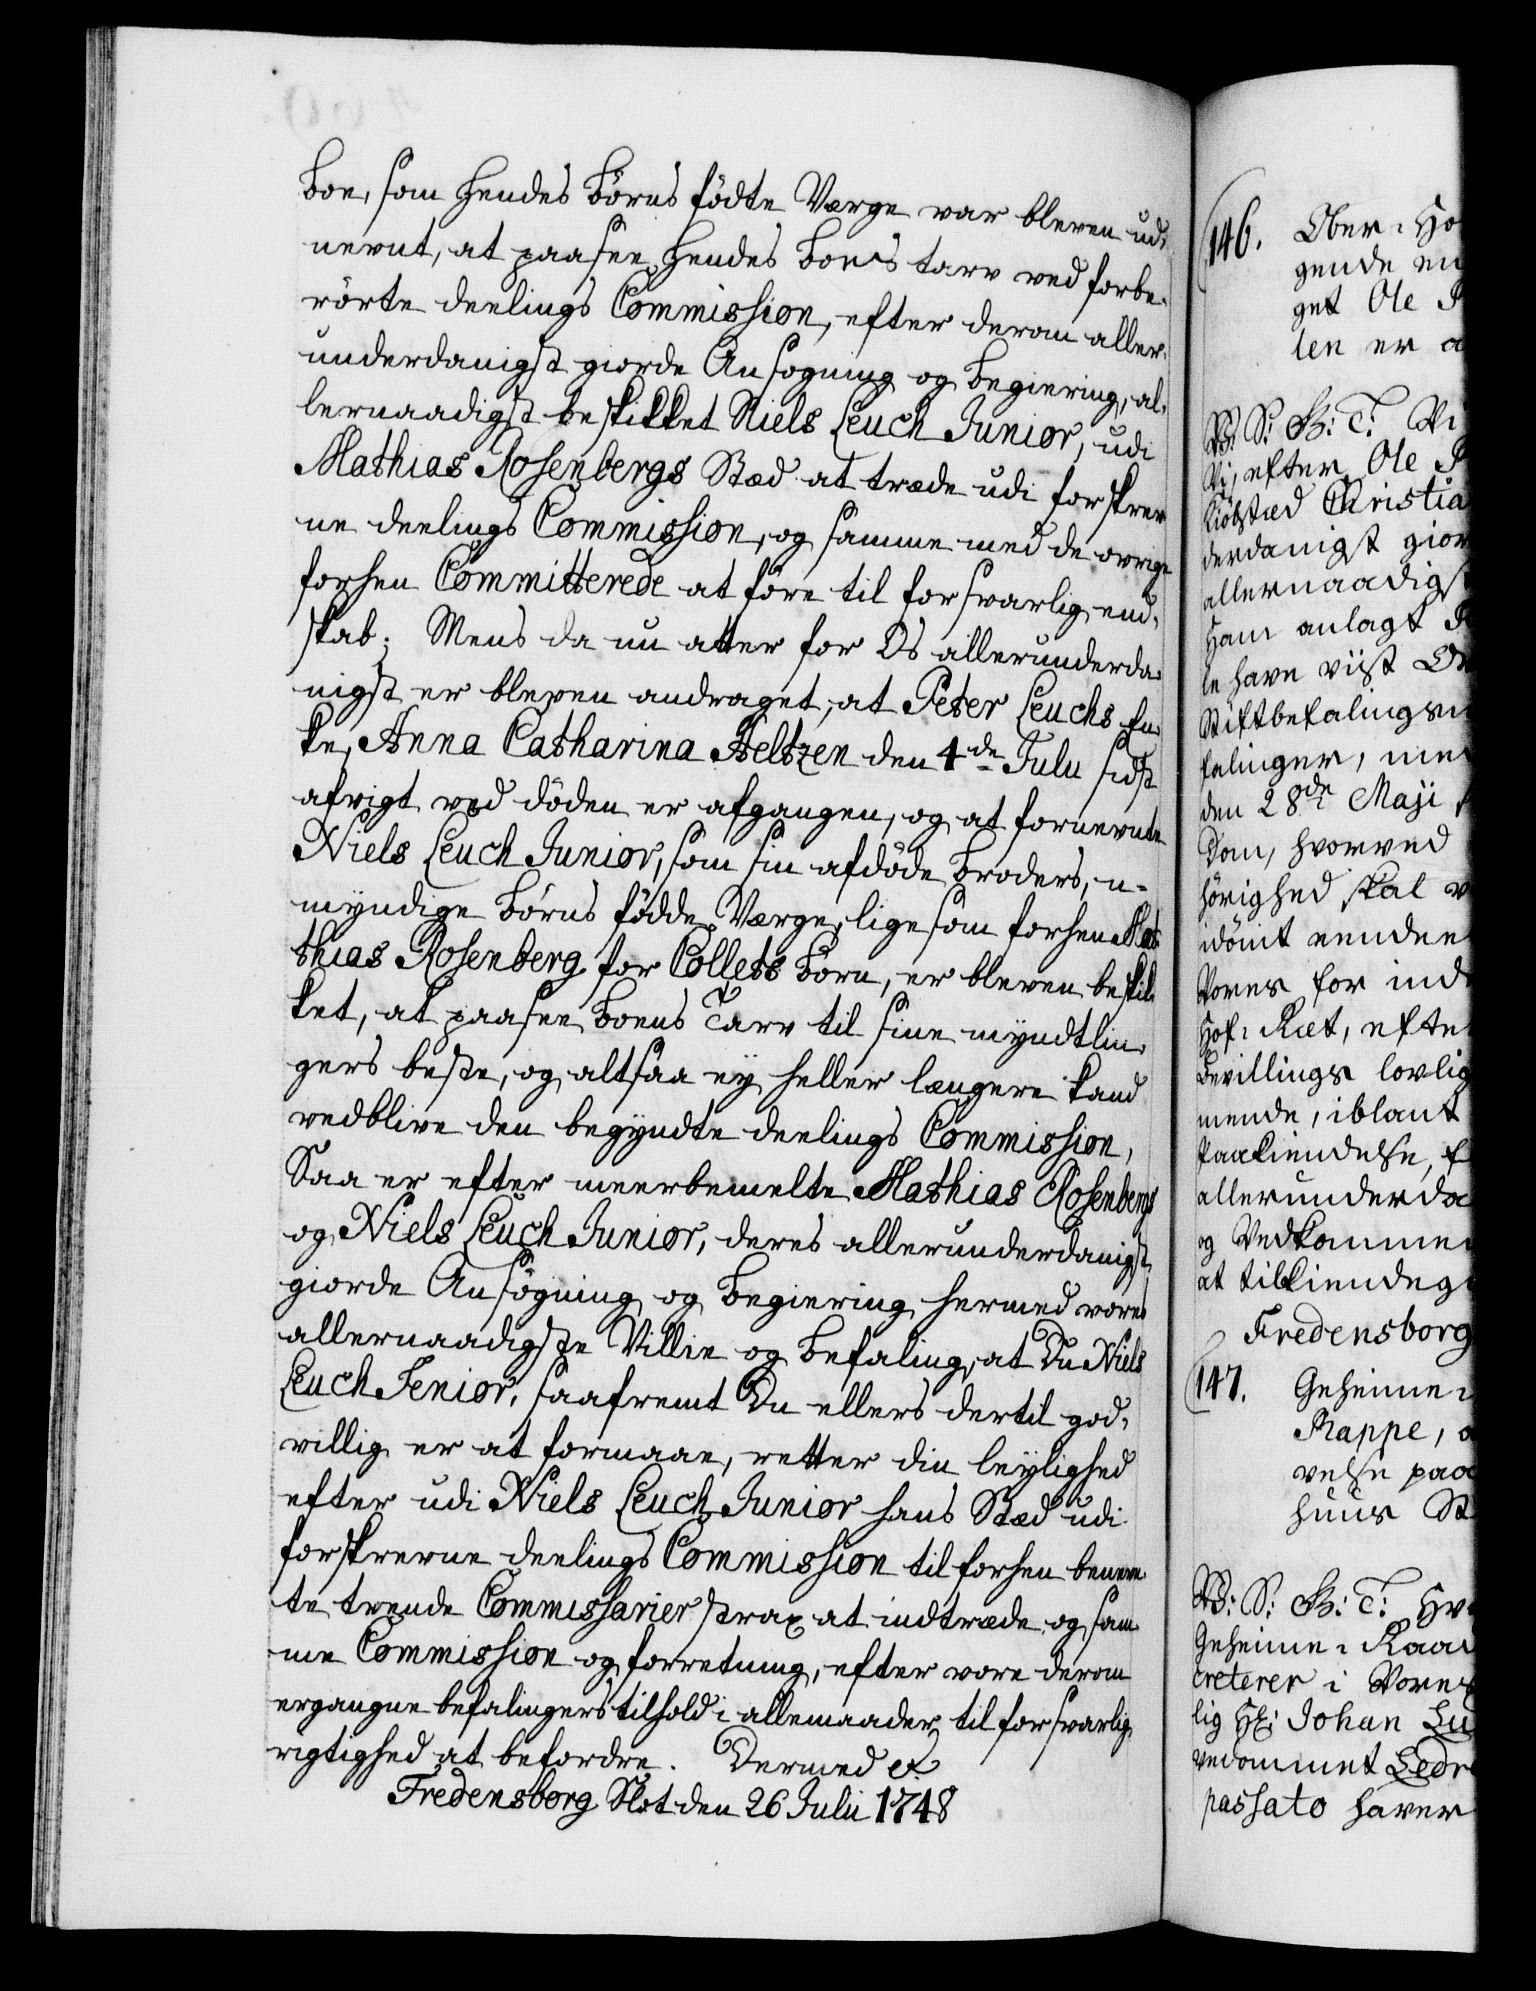 Boe, som hendes Börns födte Værge var bleven ud¬
nevnt, at paasee hendes Boes tarv ved forbe¬
rörte deelings Commission, efter derom aller¬
underdanigst giorde Ansøgning og Begiering, al¬
lernaadigst beskikket Niels Leuch Junior, udi
Mathias Rosenbergs Stæd at træde udi forskrev
ne deelings Commission, og samme med de øvrige
forhen Committerede at före til forsvarlig end¬
skab; Mens da nu atter for Os allerunderda¬
nigst er bleven andraget, at Peter Leuchs En¬
ke, Anna Catharina Heltzen den 4de Julii sidst
afvigt ved döden er afgangen, og at fornevnte
Niels Leuch Junior, som sin afdöde Broders, u¬
myndige Börns födde Værge, ligesom forhen Ma
thias Rosenberg for Collets Börn, er bleven beskik¬
ket, at paasee Boens Tarv til sine myndtlin¬
gers beste, og altsaa ey heller længere kand
vedblive den begyndte deelings Commission,
Saa er efter meerbemelte Mathias Rosenbergs
og Niels Leuch Junior, deres allerunderdanigst
giorde Ansögning og Begiering hermed vores
allernaadigste Villie og Befaling, at Du Niels
Leuch Senior, saafremt Du ellers dertil god¬
villig er at formaae, retter din leylighed
efter udi Niels Leuch Junior hans Stæd udi
forskrevne deelings Commission til forhen benevn
te trende Commissarier strax at indtræde og sam
me Commission og forretning, efter vore derom
ergangne befalingers tilhold i allemaader til forsvarlig
rigtighed at befordre. Dermed etc
Fredensborg Slot den 26 Julii 1748
146. Ober-Ho
gende en
get Ole
len er a
V: S: G: T: Vi
Vi, efter Ole
Kiöbstæd Christia
derdanigst gior
allernaadigst
Ham anlagt
le have viist
Stiftbefalingsm
falinger, med
den 28de Maji
Dom, hvorved
hörighed skal
idömt
Vores for ind
Hof-Ræt, efte
Bevillings lovlig
mende, iblant
Paakiendelse, f
allerunderda
og Vedkommen
at tilkiendeg
Fredensborg
147. Geheime-
Rappe, a
velse paa
huus St
V: S: G: T: Hv
Geheime-Raad
creterer i Vores
lig Hr: Johan Lu
vedommet Ledr
passato haver